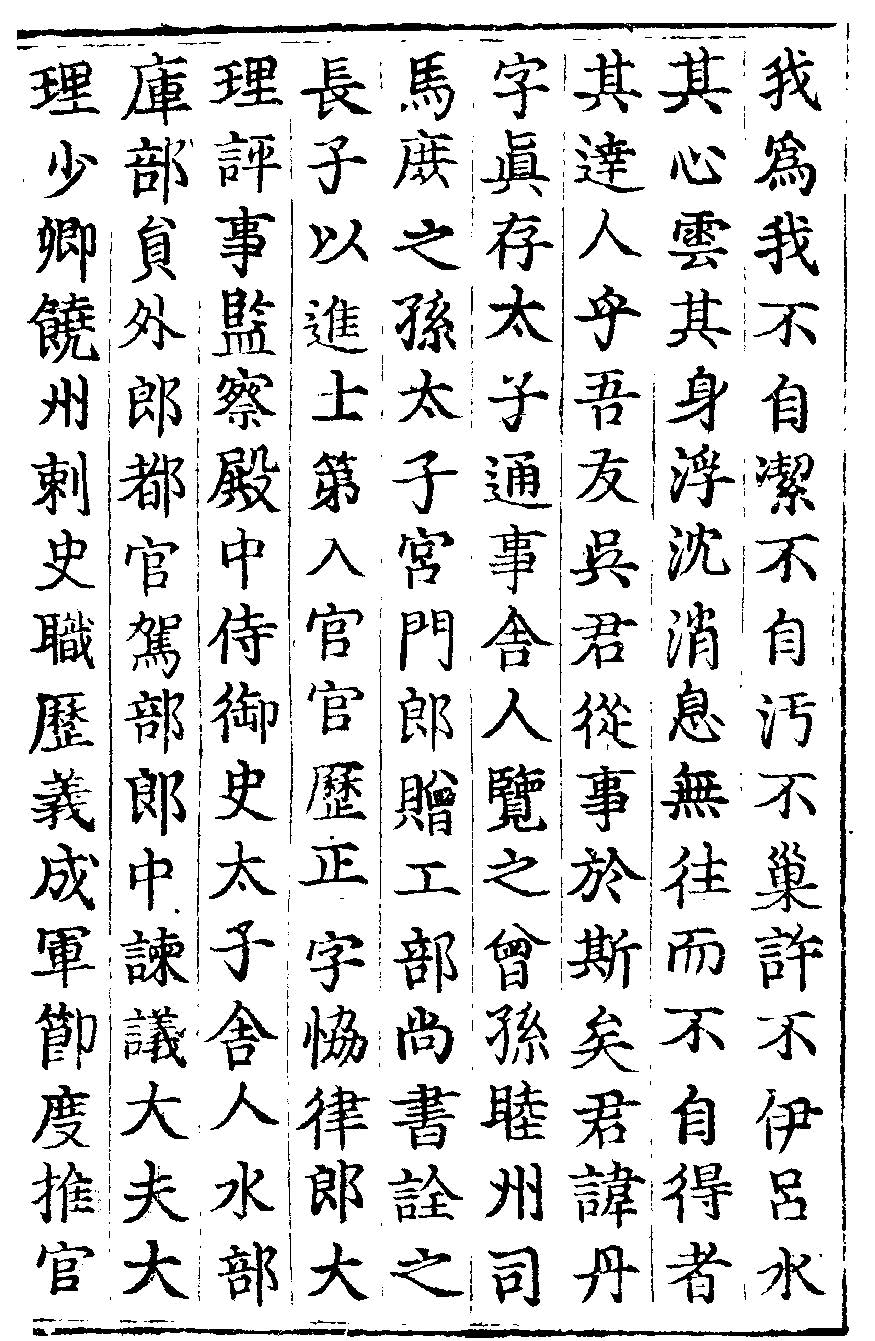 我爲我不自潔不自汚不巢許不伊呂水
其心雲其身浮沈消息無往而不自得者
其達人乎吾友吳君從事於斯矣君諱丹
字眞存太子通事舍人覽之曾孫睦州司
馬庻之孫太子宮門郎贈工部尚書詮之
長子以進士第入官官歷正字恊律郎大
理評事監察殿中侍御史太子舍人水部
庫部貟外郎都官駕部郎中諫議大夫大
理少卿饒州刺史職歷義成軍節度推官